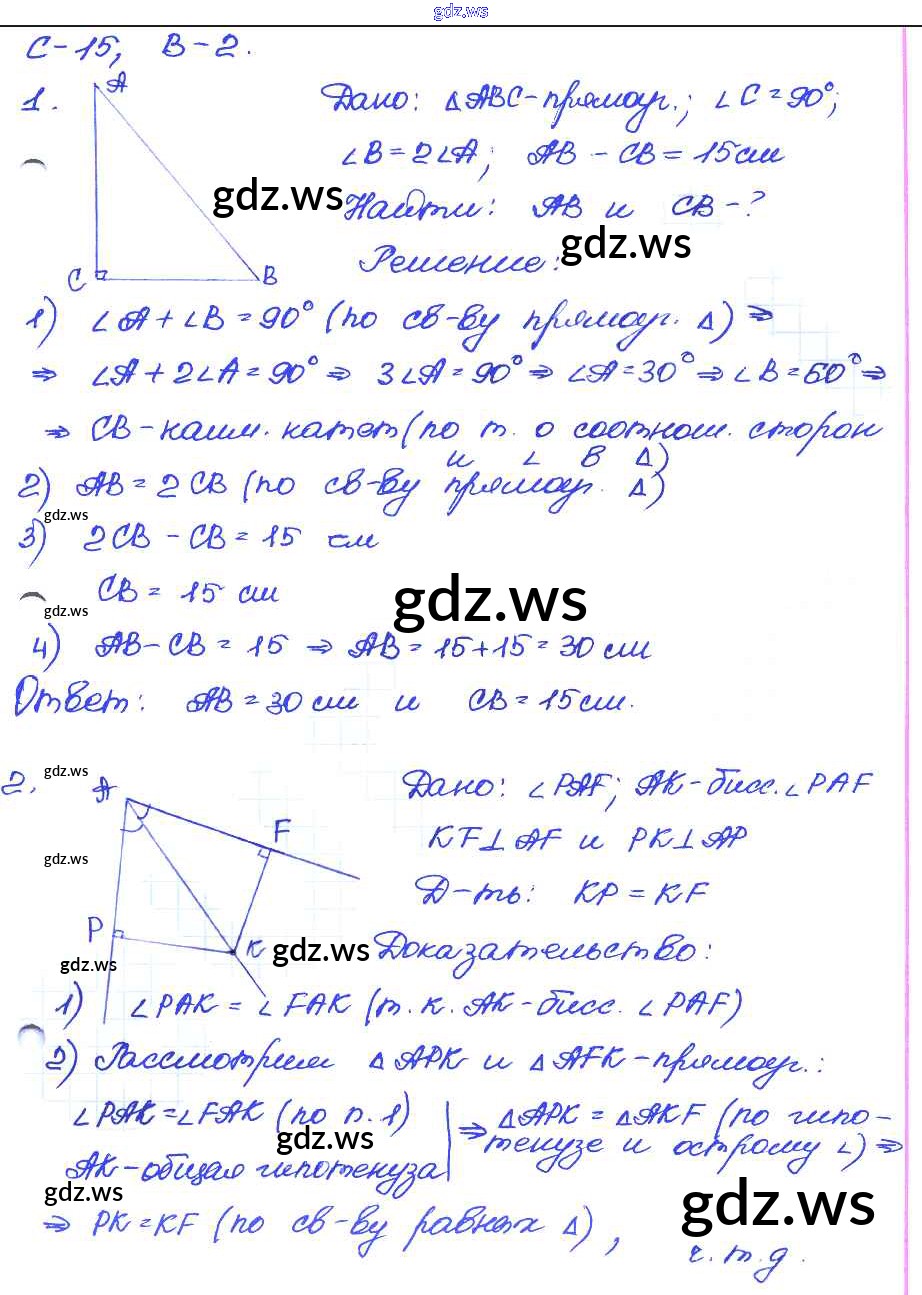 gdz.ws
С-15, В-2.
1.
A
C
B
Дано: △ABC-прямоуг.; ∠C=90°;
∠B=2∠A; AB-CB=15см
gdz.ws
Найти: AB и CB-?
gdz.ws
Решение:
1) ∠A+∠B=90° (по св-ву прямоуг. △) ⇒
⇒ ∠A+2∠A=90° ⇒ 3∠A=90° ⇒ ∠A=30° ⇒ ∠B=60° ⇒
⇒ CB-наим. катет (по т. о соотнош. сторон
и ∠ в △)
2) AB=2CB (по св-ву прямоуг. △)
gdz.ws
3) 2CB-CB=15 см
CB=15 см
gdz.ws
gdz.ws
4) AB-CB=15 ⇒ AB=15+15=30 см
Ответ: AB=30 см и CB=15см.
gdz.ws
2.
A
F
P
K
Дано: ∠PAF; AK-бисс.∠PAF
KF⊥AF и PK⊥AP
gdz.ws
Д-ть: KP=KF
gdz.ws
Доказательство:
gdz.ws
1) ∠PAK=∠FAK (т.к. AK-бисс. ∠PAF)
2) Рассмотрим △APK и △AFK-прямоуг.:
∠PAK=∠FAK (по п.1) ⇒ △APK=△AKF (по гипо-
тенузе и острому ∠) ⇒
gdz.ws
AK-общая гипотенуза
gdz.ws
gdz.ws
⇒ PK=KF (по св-ву равных △),
ч.т.д.